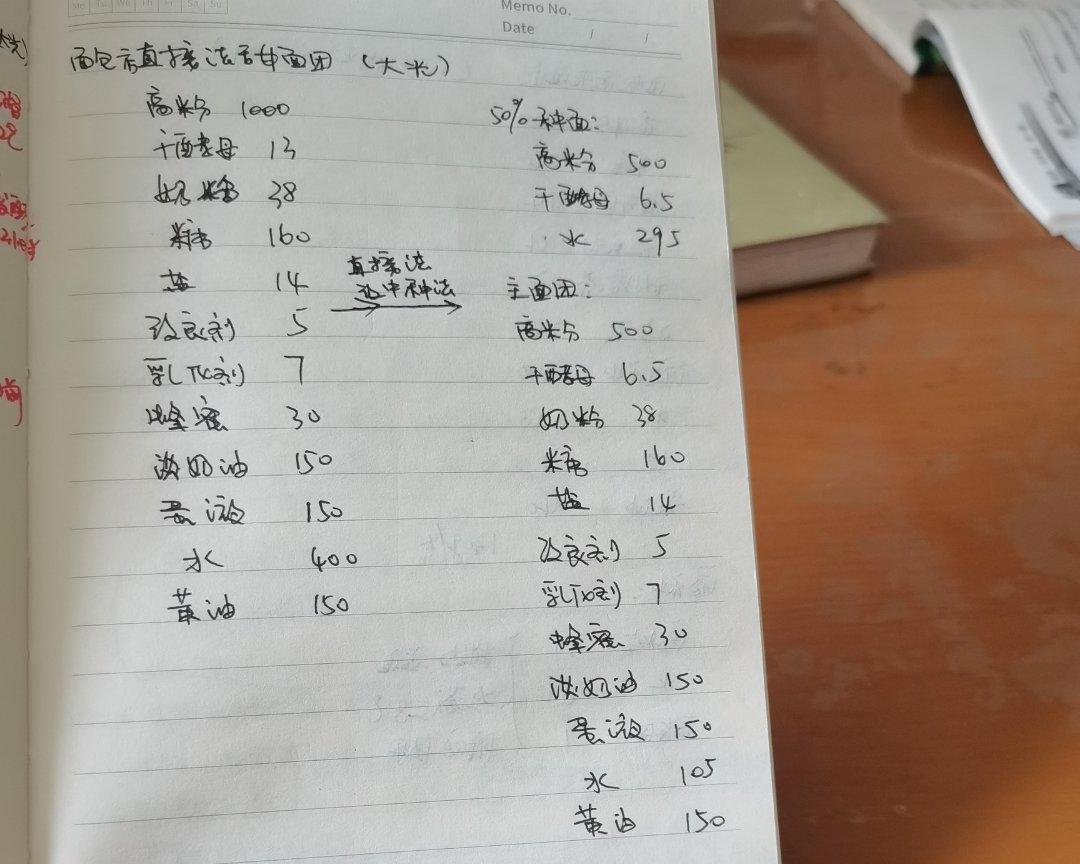 Mo Tu We Th Fr Sa Su
Memo No.
Date / /
面包店直接法吾甘面团 (大米)
高粉 1000
干酵母 13
奶粉 38
糖 160
盐 14
改良剂 5
乳化剂 7
蜂蜜 30
淡奶油 150
蛋液 150
水 400
黄油 150
直接法
改中种法
50%种面:
高粉 500
干酵母 6.5
水 295
主面团:
高粉 500
干酵母 6.5
奶粉 38
糖 160
盐 14
改良剂 5
乳化剂 7
蜂蜜 30
淡奶油 150
蛋液 150
水 105
黄油 150